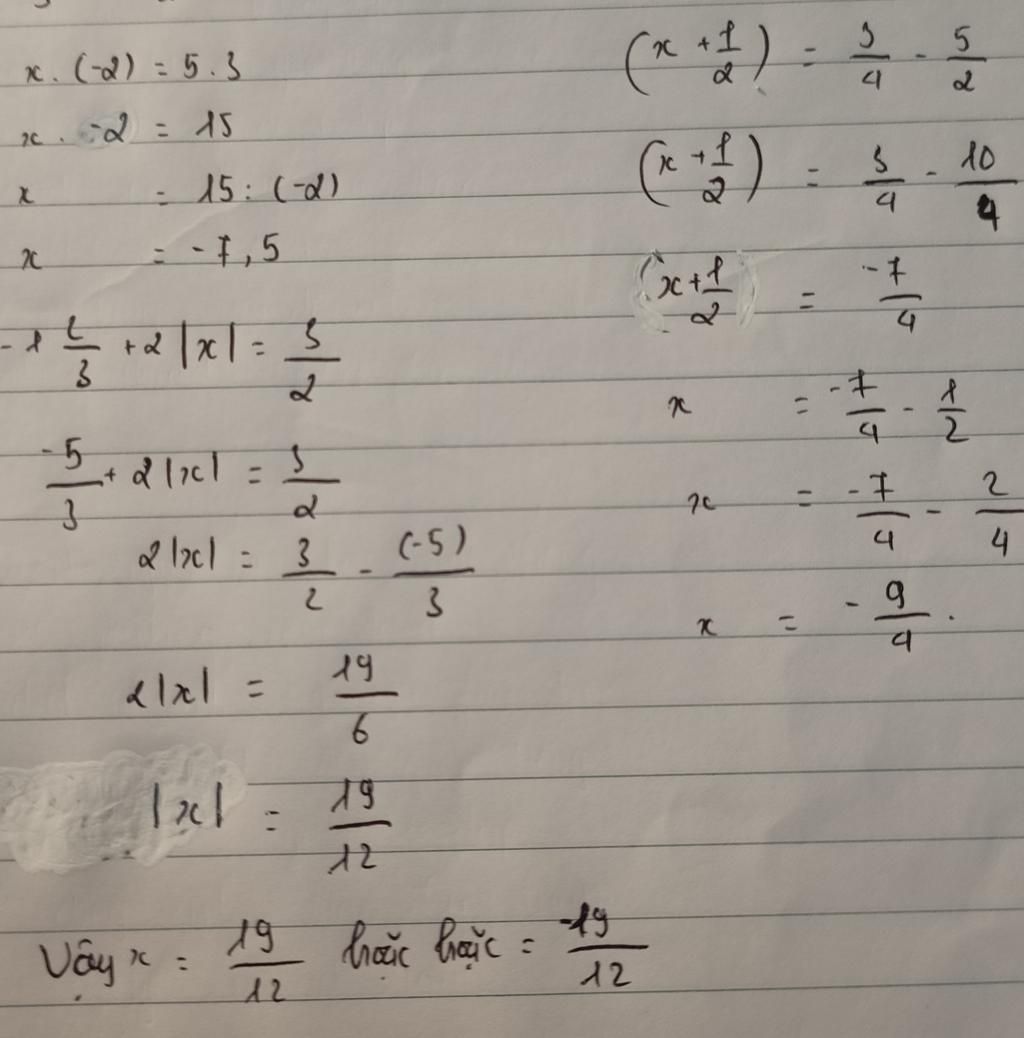 x . (-2) = 5 . 3
x . -2 = 15
x = 15 : (-2)
x = -7,5
-1 2/3 + 2 |x| = 3/2
-5/3 + 2 |x| = 3/2
2|x| = 3/2 - (-5)/3
2|x| = 19/6
|x| = 19/12
Vậy x = 19/12 hoặc hoặc = -19/12
(x + 1/2) = 3/4 - 5/2
(x + 1/2) = 3/4 - 10/4
(x + 1/2) = -7/4
x = -7/4 - 1/2
x = -7/4 - 2/4
x = -9/4 .